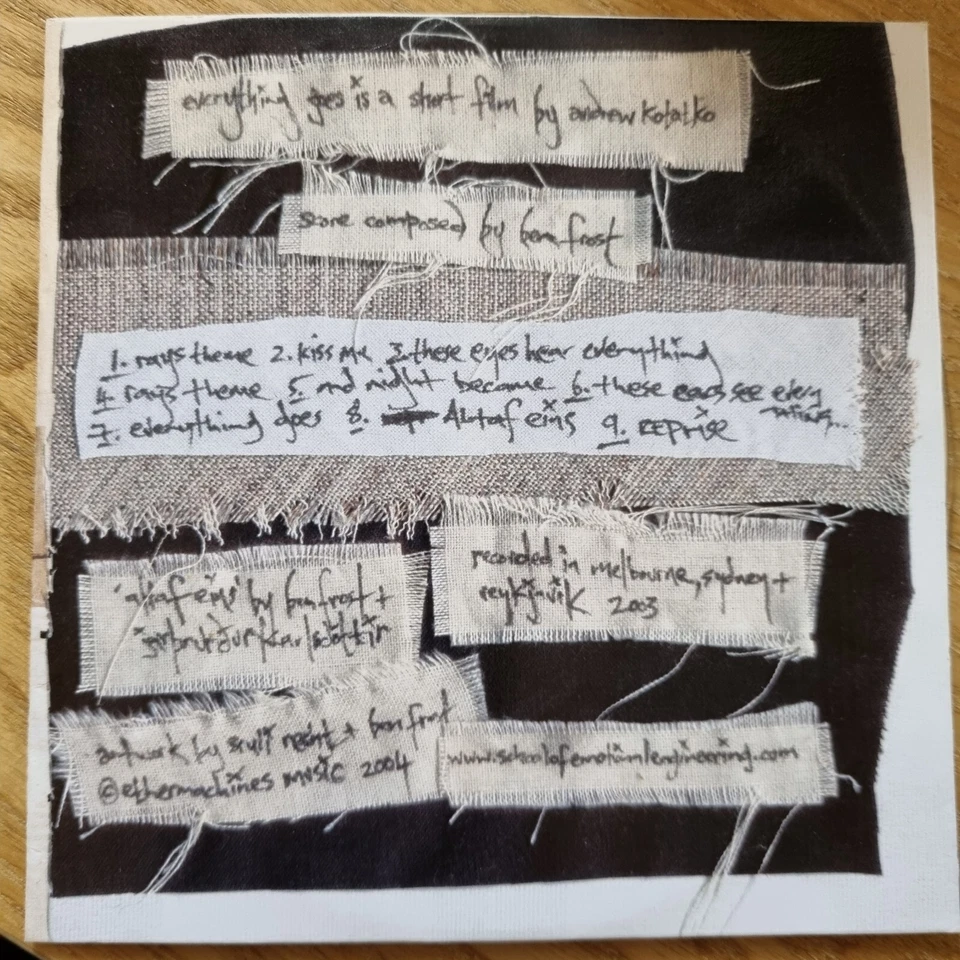 everything goes is a short film by andrew kotatko
score composed by ben frost
1. rays theme 2. kiss me 3. these eyes hear everything
4. rays theme 5. and night became 6. these ears see every
things...
7. everything goes 8. Alltaf eins 9. reprise
by ben frost +
recorded in melbourne, sydney +
reykjavik 2003
artwork by + ben frost
©ethermachines music 2004
www.schoolofemotionalengineering.com